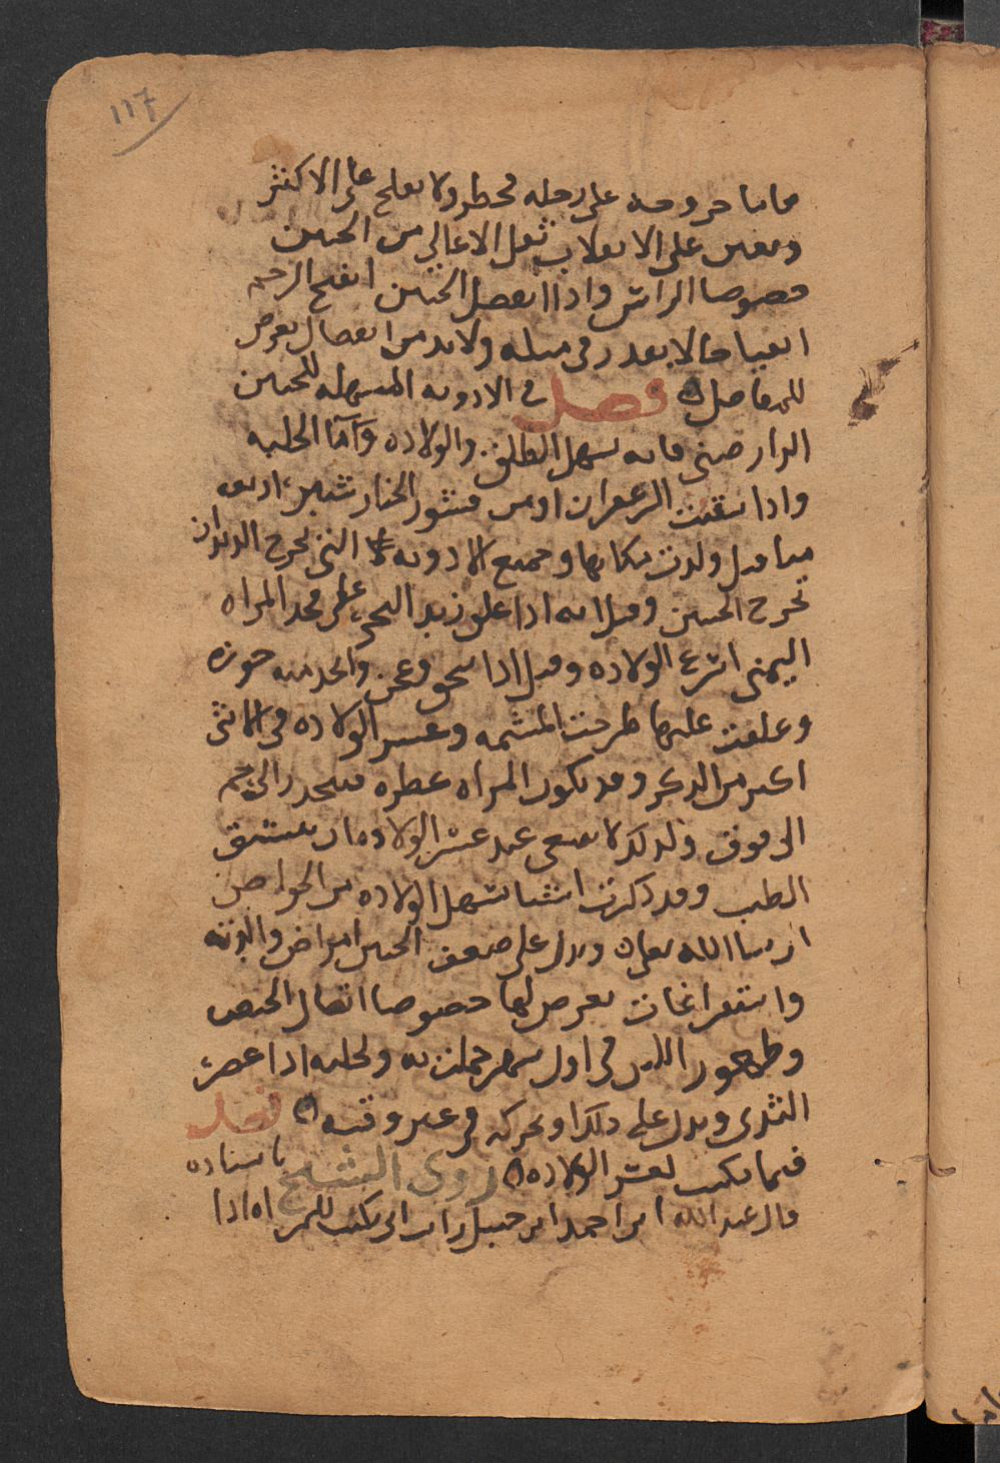 ١١٧
فاما خروجه على رجليه فخطر ولا يفلح على الاكثر
ويعين على الانقلاب ثقل الاعالي من الجنين
خصوصا الراس واذا انفصل الجنين انفتح الرحم
انفتاحا لا يقدر في مثله ولا بد من انفصال يعرض
للمفاصل فصل في الادويه المسهله للجنين
الدارصيني فانه يسهل الطلق والولاده واما الحلبه
واذا سقيت الزعفران او من قشور الخيارشنبر اربعه
مثاقيل ولدت مكانها وجميع الادويه التي تخرج الديدان
تخرج الجنين وقيل انه اذا علق زبد البحر على فخذ المراه
اليمنى اسرع الولاده وقيل اذا سحق وعجن واتخذ منه جوزه
وعلقت عليها طرحت المشيمه وعسر الولاده في الانثى
اكثر من الذكر وقد تكون المراه عطره فينجذب الرحم
الى فوق ولذلك لا ينبغي عند عسر الولاده ان يستنشق
الطيب وقد ذكرت اشيا تسهل الولاده من الخواص
ان شا الله تعالى ويدل على ضعف الجنين امراض والدته
واستفراغات يعرض لها خصوصا اتصال الحيض
وظهور اللبن في اول شهر حملت به وتحلبه اذا عصر
الثدي ويدل على ذلك او تحركه في غير وقته فصل
فيما يكتب لعسر الولاده روى الشيخ باسناده
قال عبد الله ابن احمد ابن حنبل رايت ابي يكتب للمراه اذا